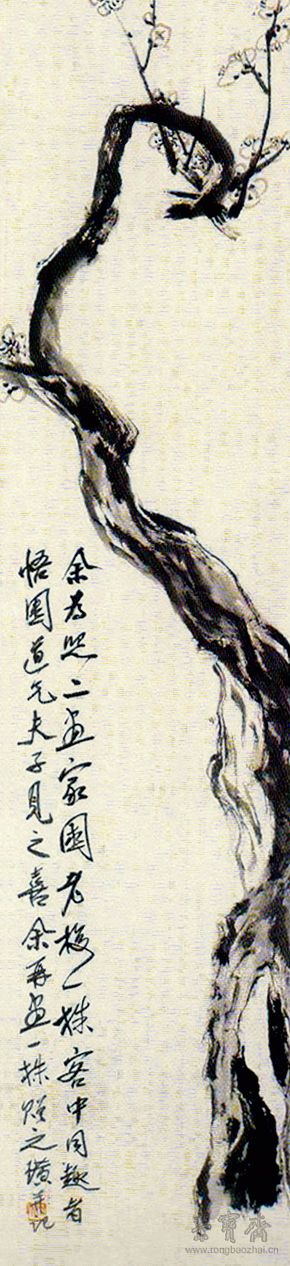 余为思二画家园老梅一株客中同趣者
悟园道兄夫子见之喜余再画一株赠之璜并记
荣宝斋
www.rongbaozhai.cn